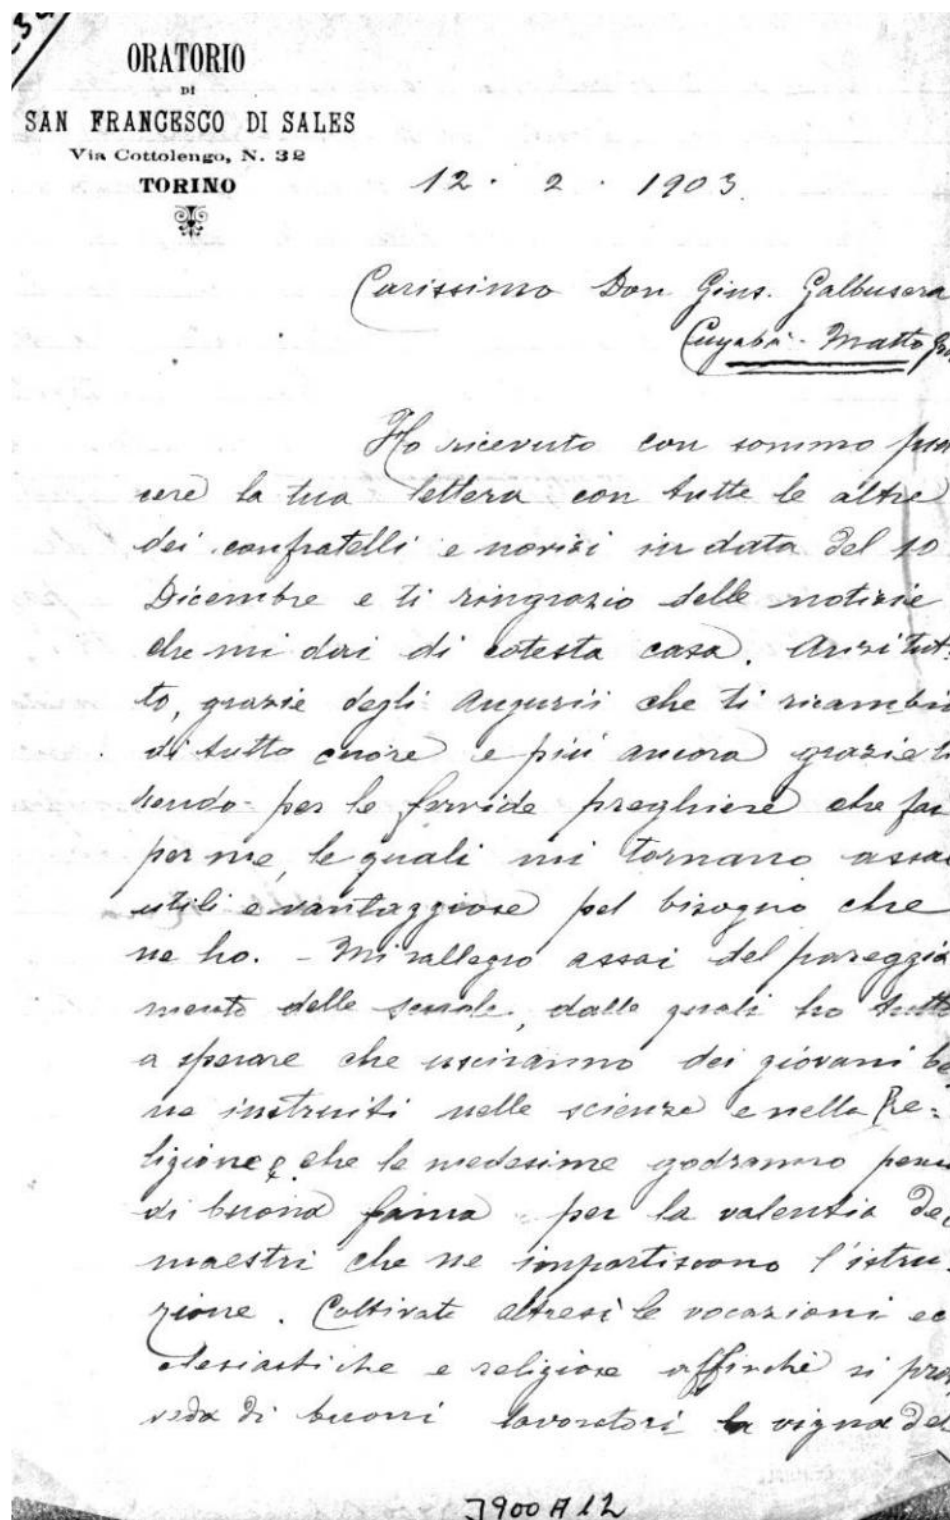 ORATORIO
DI
SAN FRANCESCO DI SALES
Via Cottolengo, N. 32
TORINO
12 . 2 . 1903.
Carissimo Don Gius. Galbusera
Cuyabà - Matto
Ho ricevuto con sommo pia
cere la tua lettera con tutte le altre
dei confratelli e novizi in data del 10
Dicembre e ti ringrazio delle notizie
che mi dai di cotesta casa. Anzitut=
to, grazie degli Augurii che ti ricambio
di tutto cuore e più ancora grazie ti
rendo per le fervide preghiere che fai
per me, le quali mi tornano assai
utili e vantaggiose pel bisogno che
ne ho. - Mi rallegro assai del pareggia
mento delle scuole, dalle quali ho tutto
a sperare che usciranno dei giovani be
ne instruiti nelle scienze e nella Re=
ligione e che le medesime godranno
di buona fama per la valentia dei
maestri che ne impartiscono l'istru-
zione. Coltivate altresì le vocazioni ec
clesiastiche e religiose affinchè si prov
veda di buoni lavoratori la vigna del
J900A12